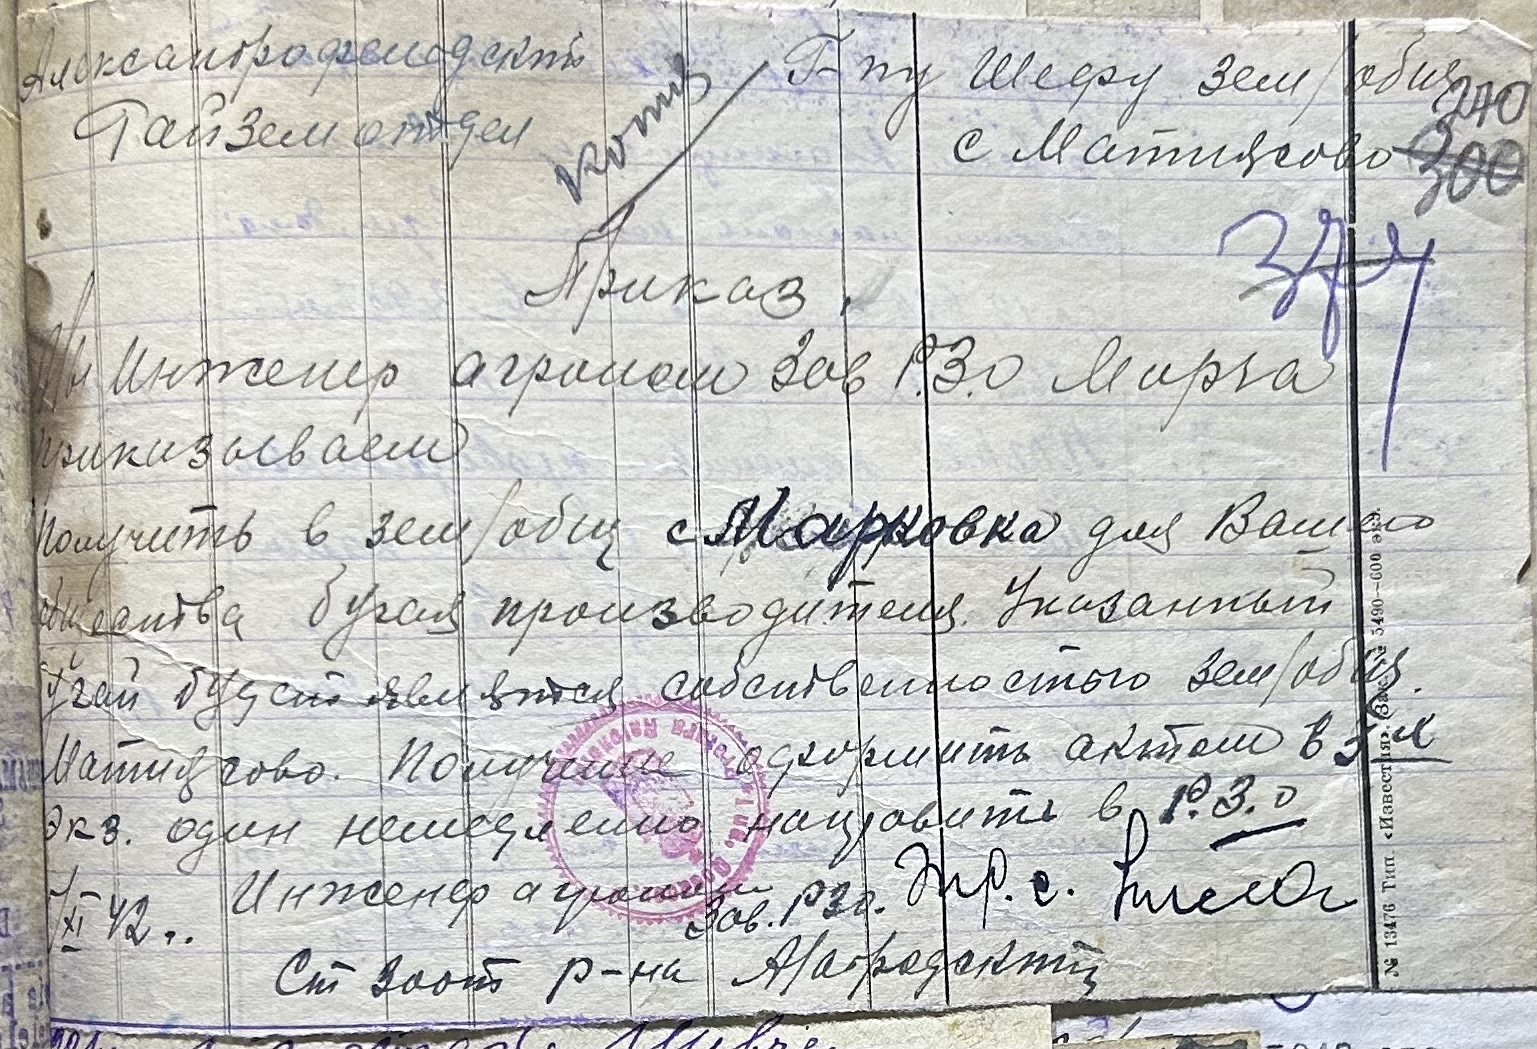 Александрофельдский
Райземотдел
копия
Г-ну Шефу зем/общ
240
с Матиясово
300
Приказ.
Инженер агроном Зав Р.З.О Марча
приказываем
Получить в зем/общ с Марковка для Вашего
общества бугая производителя. Указанный
бугай будет являться собственностью зем/общ.
Матиясово. Получение оформить актом в 2х
экз. один немедленно направить в Р.З.О
Инженер агроном
Зав. РЗО.
7/XI 42..
Ст зоот р-на
№ 13476 Тип. «Известия». Зак. № 5490—600 экз.